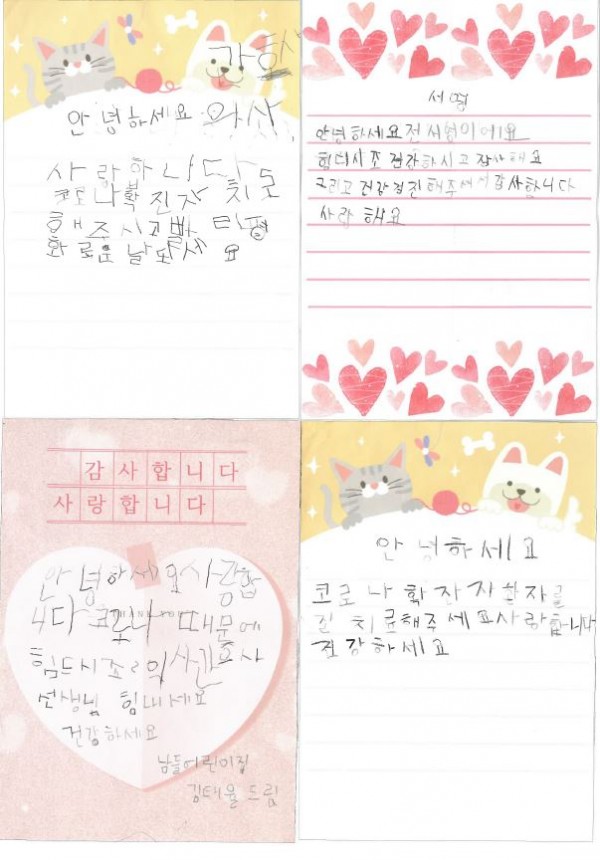 안녕하세요 의사,
감호사
사랑하니다
코로나확진자 치료
해주시고빨리평
화로운날 보내세요
서영
안녕하세요전 서영이에요
힘드시조 건강하시고 감사해요
그리고 건강검진해주셔서감사합니다
사랑 해요
감사합니다
사랑합니다
안녕하세요사랑합
니다 코로나 때문에
힘드시조의사간호사
선생님 힘내세요
건강하세요
남들어린이집
김태율 드림
안녕하세요
코로나 확자지환자를
잘 치료해주세요사랑합니다
건강하세요